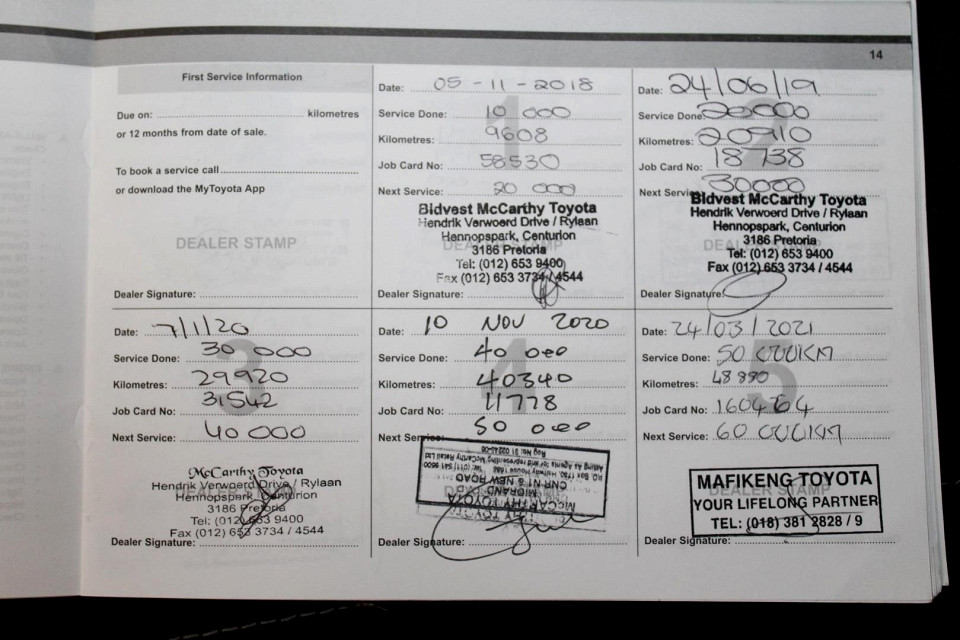 14
First Service Information
Due on: kilometres
or 12 months from date of sale.
To book a service call
or download the MyToyota App
DEALER STAMP
Dealer Signature:
1
Date: 05 - 11 - 2018
Service Done: 10 000
Kilometres: 9608
Job Card No: 58530
Next Service: 20 000
Bidvest McCarthy Toyota
Hendrik Verwoerd Drive / Rylaan
Hennopspark, Centurion
3186 Pretoria
Tel: (012) 653 9400
Fax (012) 653 3734 / 4544
Dealer Signature:
2
Date: 24/06/19
Service Done: 20000
Kilometres: 20910
Job Card No: 18738
Next Service: 30000
Bidvest McCarthy Toyota
Hendrik Verwoerd Drive / Rylaan
Hennopspark, Centurion
3186 Pretoria
Tel: (012) 653 9400
Fax (012) 653 3734 / 4544
Dealer Signature:
3
Date: 7/1/20
Service Done: 30 000
Kilometres: 29920
Job Card No: 31542
Next Service: 40 000
McCarthy Toyota
Hendrik Verwoerd Drive / Rylaan
Hennopspark, Centurion
3186 Pretoria
Tel: (012) 653 9400
Fax (012) 653 3734 / 4544
Dealer Signature:
4
Date: 10 NOV 2020
Service Done: 40 000
Kilometres: 40340
Job Card No: 11778
Next Service: 50 000
McCARTHY TOYOTA
MIDRAND
CNR N1 & NEW ROAD
P.O. Box 1750 Halfway House 1685 Tel: (011) 541 9500
Acting As Agents for and representing McCarthy Retail Ltd
Dealer Signature:
5
Date: 24/03/2021
Service Done: 50 000KM
Kilometres: 48 890
Job Card No: 160464
Next Service: 60 000KM
DEALER STAMP
MAFIKENG TOYOTA
YOUR LIFELONG PARTNER
TEL: (018) 381 2828 / 9
Dealer Signature: